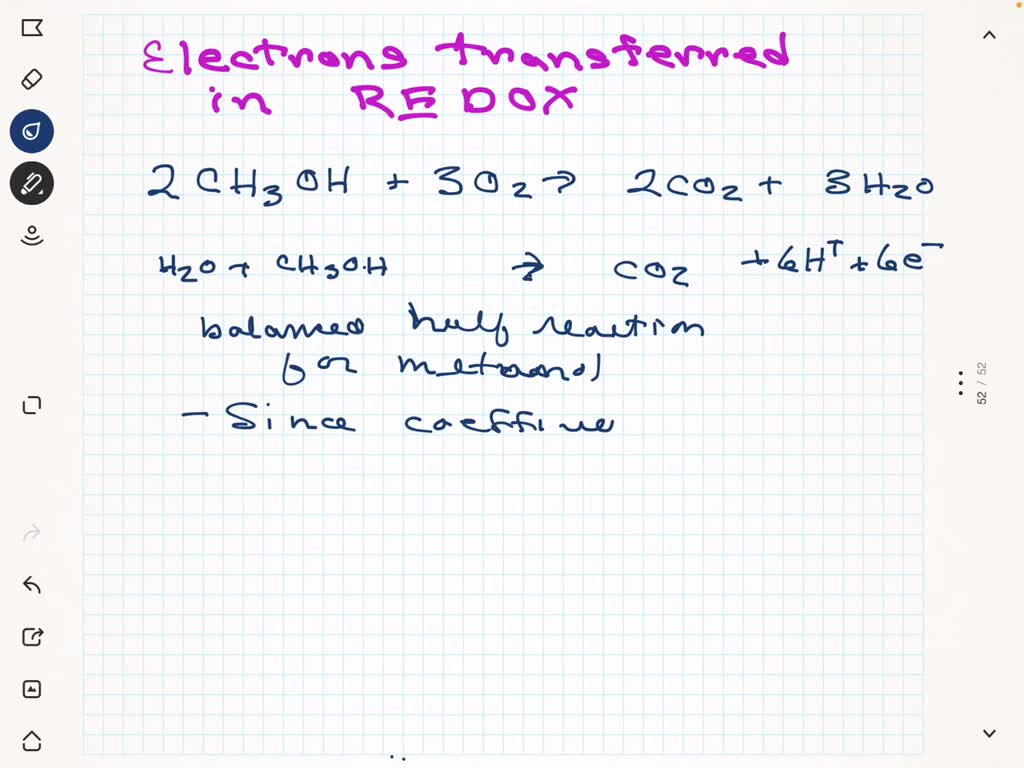 Electrons transferred
in REDOX
2 CH3OH + 3O2 → 2CO2 + 3H2O
H2O + CH3OH → CO2 + 6H+ + 6e-
balanced half reaction
for metanol
- Since coeffine
52 / 52